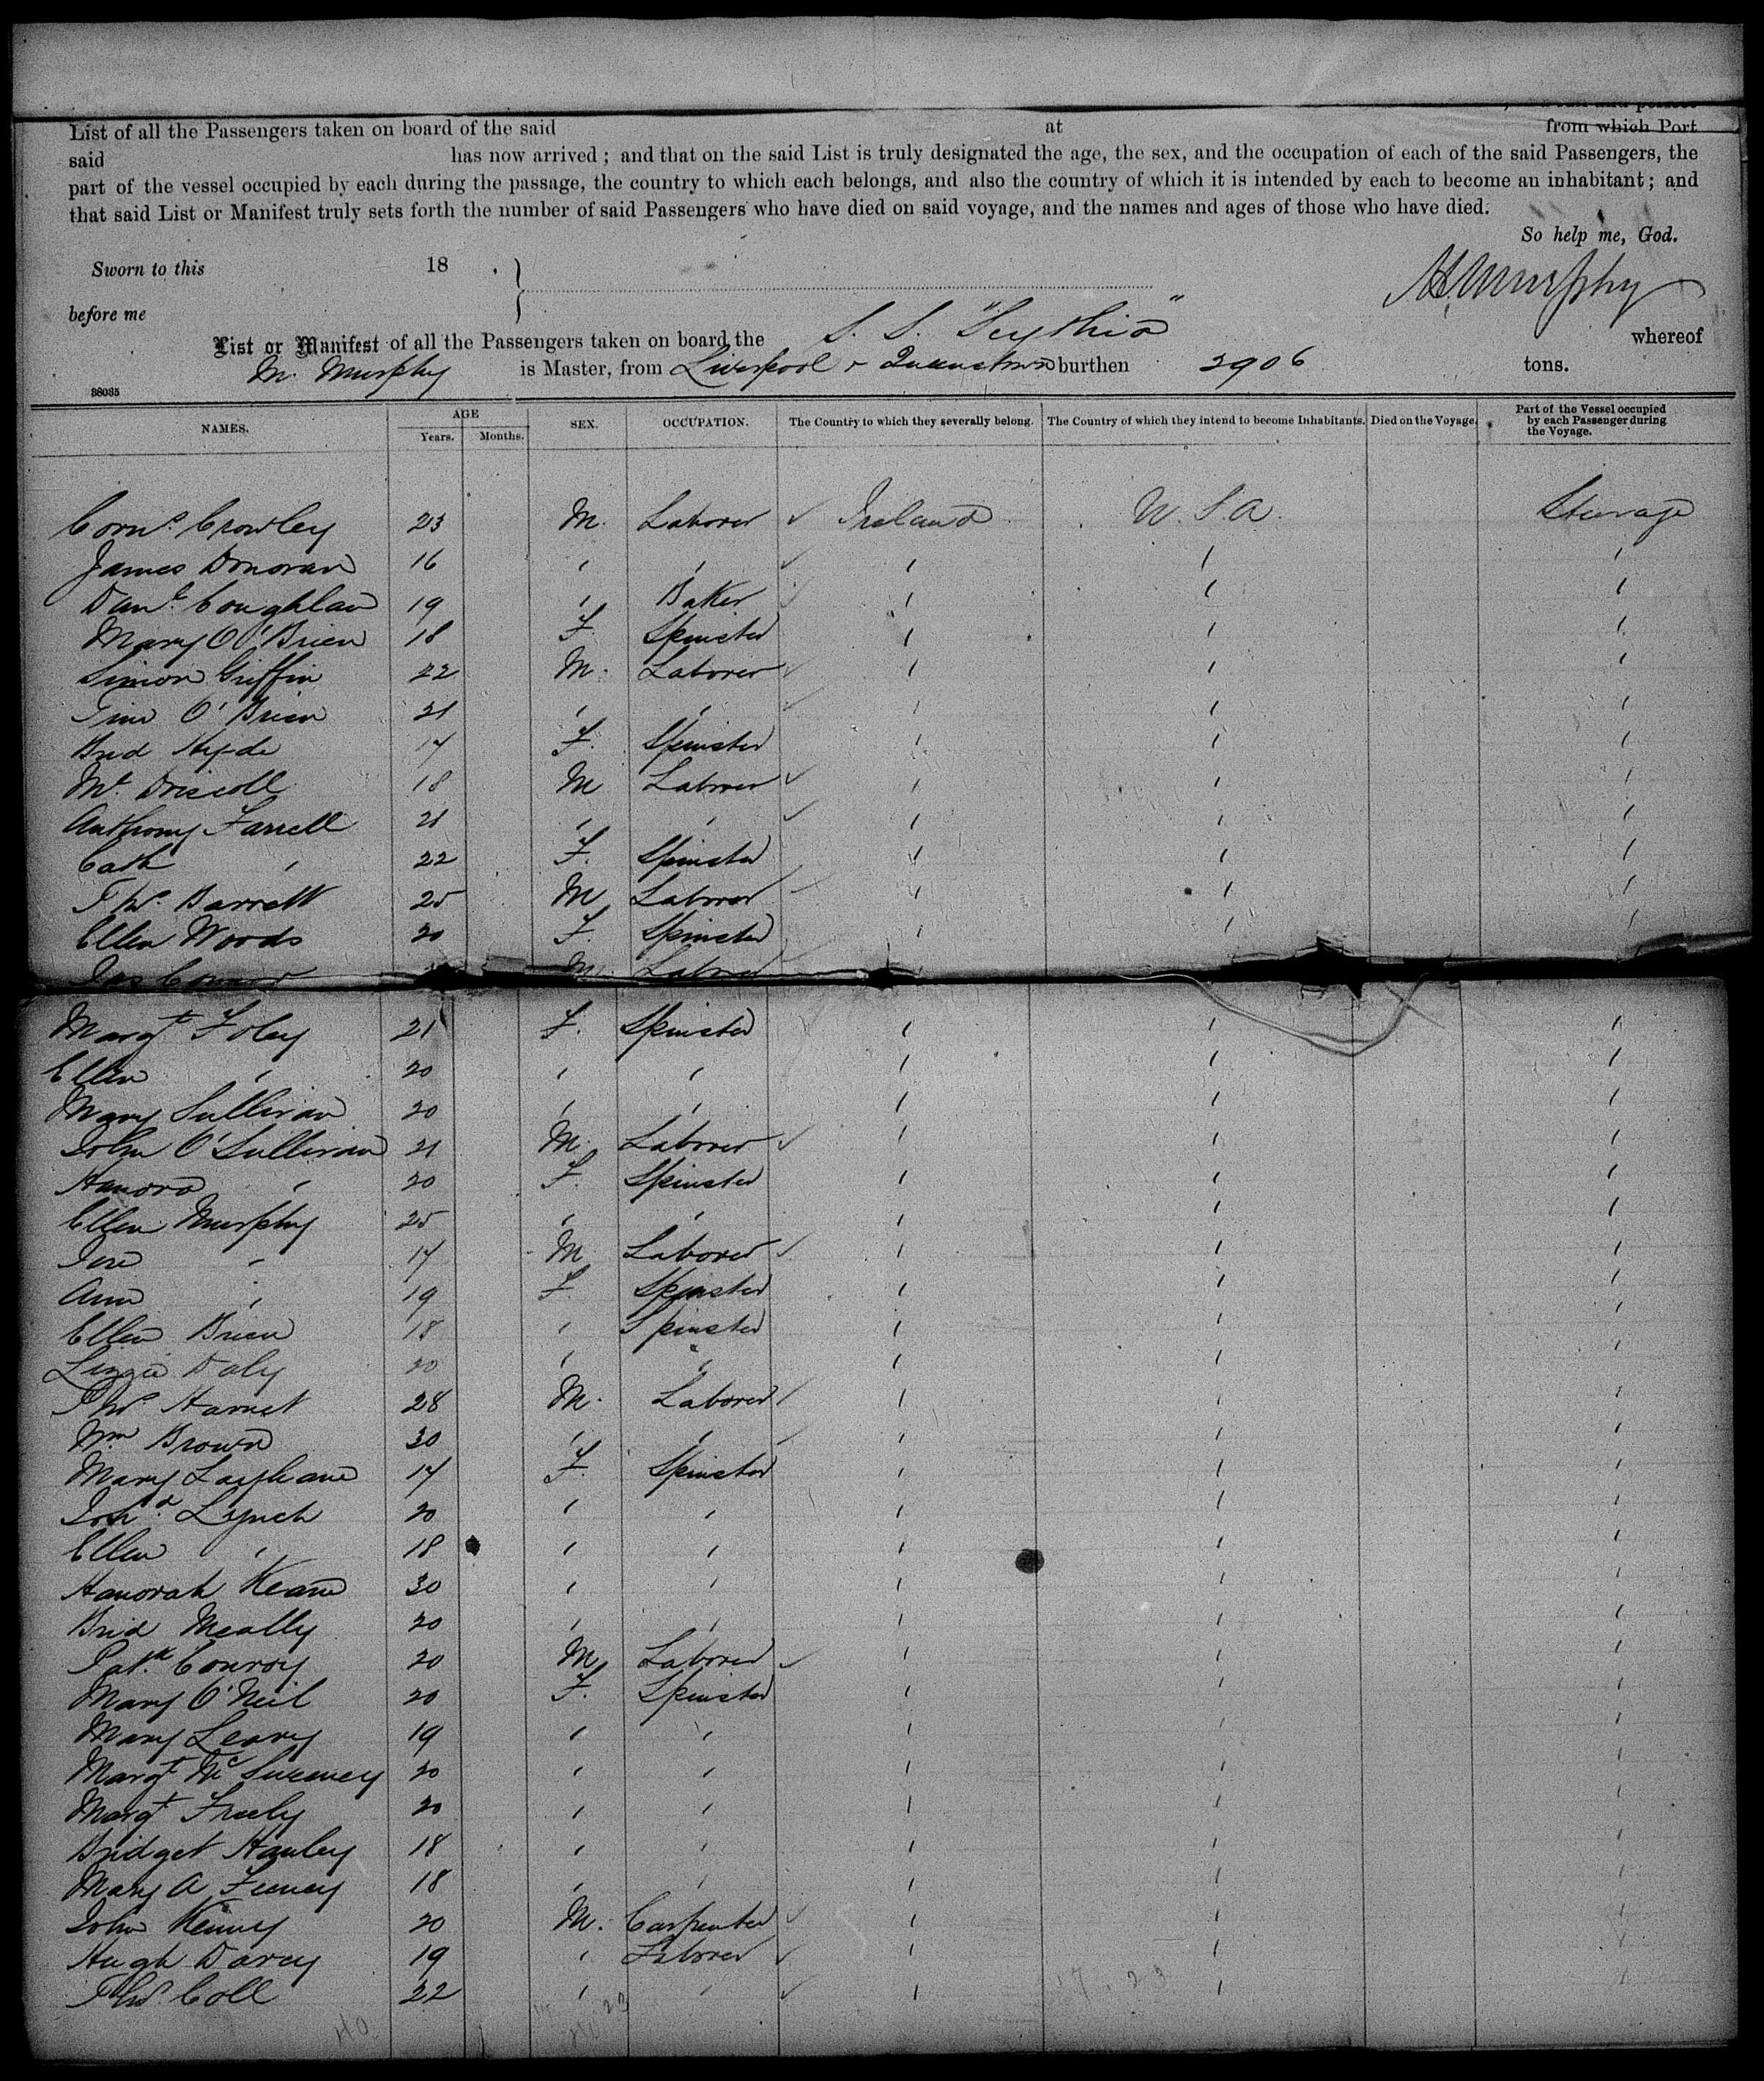 List of all the Passengers taken on board of the said at from which Port
said has now arrived ; and that on the said List is truly designated the age, the sex, and the occupation of each of the said Passengers, the
part of the vessel occupied by each during the passage, the country to which each belongs, and also the country of which it is intended by each to become an inhabitant ; and
that said List or Manifest truly sets forth the number of said Passengers who have died on said voyage, and the names and ages of those who have died.
So help me, God.
Sworn to this 18 .
before me
Murphy
List or Manifest of all the Passengers taken on board the S. S. "Scythia" whereof
M. Murphy is Master, from Liverpool & Queenstown burthen 2906 tons.
38035
NAMES. AGE Years. Months. SEX. OCCUPATION. The Country to which they severally belong. The Country of which they intend to become Inhabitants. Died on the Voyage. Part of the Vessel occupied by each Passenger during the Voyage.
Corns. Crowley 23 M. Laborer ✓ Ireland U. S. A. Steerage
James Donovan 16 " " ✓ " " "
Danl. Coughlan 19 " Baker ✓ " " "
Mary O'Brien 18 F. Spinster " " "
Simon Griffin 22 M. Laborer ✓ " " "
Tim O'Brien 21 " " ✓ " " "
Brid Hyde 17 F. Spinster " " "
Mt. Driscoll 18 M Laborer ✓ " " "
Anthony Farrell 21 " " ✓ " " "
Cath " 22 F. Spinster " " "
Thos. Barrett 25 M Laborer ✓ " " "
Ellen Woods 20 F. Spinster " " "
Jas Connor M. Laborer
Margt Foley 21 F. Spinster " " "
Ellen " 20 " " " " "
Mary Sullivan 20 " " " " "
John O'Sullivan 21 M. Laborer ✓ " " "
Hanora " 20 F. Spinster " " "
Ellen Murphy 25 " " " " "
Jere " 17 M Laborer ✓ " " "
Ann " 19 F. Spinster " " "
Ellen Brien 18 " Spinster " " "
Lizzie Daly 20 " " " " "
Thos. Harnet 28 M. Laborer ✓ " " "
Wm Brown 30 " " ✓ " " "
Mary 17 F. Spinster " " "
Lynch 20 " " " " "
Ellen " 18 " " " " "
Hanorah Keane 30 " " " " "
Brid Meally 20 " " " " "
Patk. Conroy 20 M. Laborer ✓ " " "
Mary O'Neil 20 F. Spinster " " "
Mary Leary 19 " " " " "
Margt McSweeney 20 " " " " "
Margt Freely 20 " " " " "
Bridget Hanley 18 " " " " "
Mary A Feeney 18 " " " " "
John Kenney 20 M. Carpenter ✓ " " "
Hugh Darcy 19 " Laborer ✓ " " "
Thos. Coll 22 " " ✓ " " "
40 23 17.23